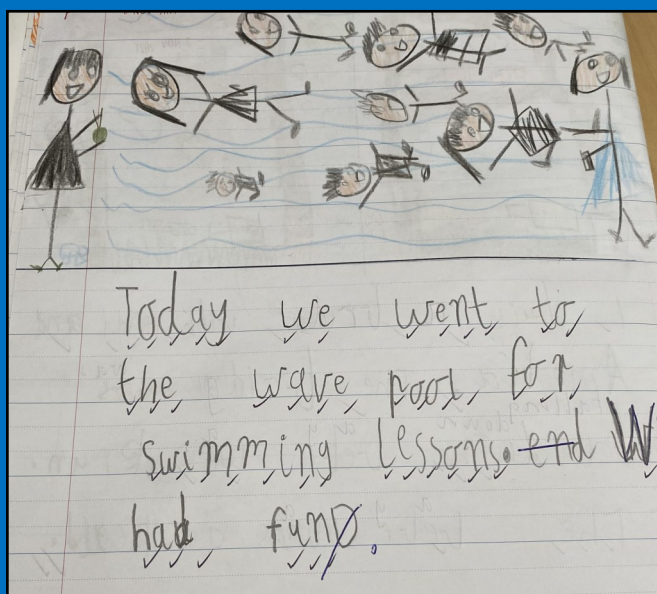 Today we went to
the wave pool for
swimming lessons. end W
had fun.